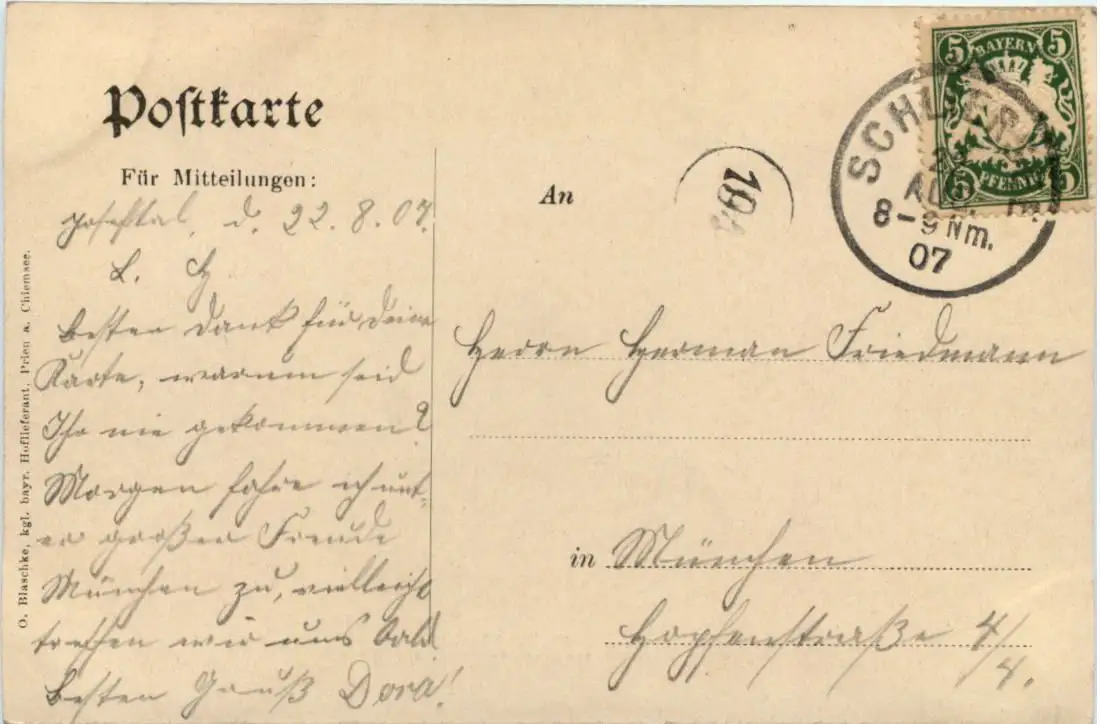 Postkarte
Für Mitteilungen:
Josefstal, d. 22.8.07.
L. H
Besten Dank für Deine
Karte, warum seid
Ihr nie gekommen?
Morgen fahre ich unt-
er großer Freude
München zu, vielleicht
treffen wir uns bald
Besten Gruß Dora!
O. Blaschke, kgl. bayr. Hoflieferant, Prien a. Chiemsee.
5 BAYERN 5
5 PFENNIG 5
SCHLIERS
AUG.
8-9 Nm.
07
19
An
Herrn Herman Friedmann
in München
Hopfenstraße 4/
4.